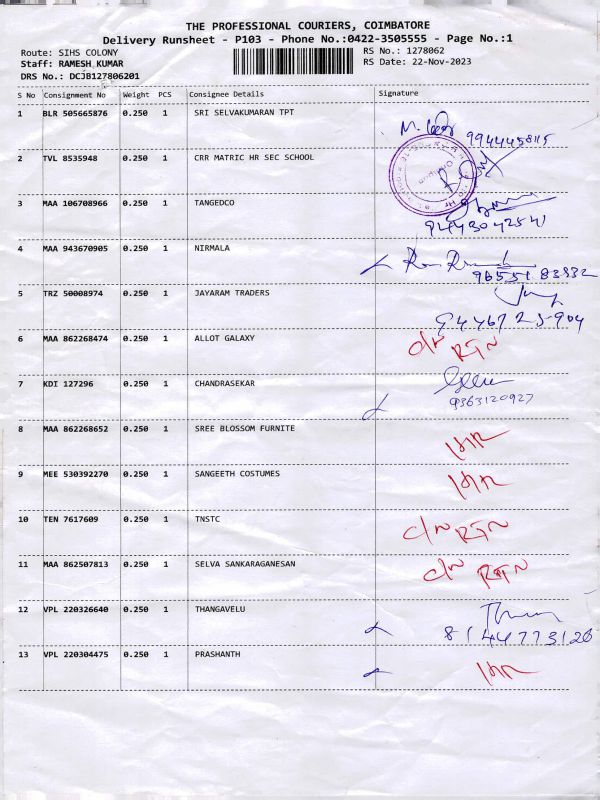 THE PROFESSIONAL COURIERS, COIMBATORE
Delivery Runsheet - P103 - Phone No.:0422-3505555 - Page No.:1
Route: SIHS COLONY RS No.: 1278062
Staff: RAMESH KUMAR RS Date: 22-Nov-2023
DRS No.: DCJB127806201
S No Consignment No Weight PCS Consignee Details Signature
1 BLR 505665876 0.250 1 SRI SELVAKUMARAN TPT
2 TVL 8535948 0.250 1 CRR MATRIC HR SEC SCHOOL
3 MAA 106708966 0.250 1 TANGEDCO
9443042541
4 MAA 943670905 0.250 1 NIRMALA
9655183832
5 TRZ 50008974 0.250 1 JAYARAM TRADERS
6 MAA 862268474 0.250 1 ALLOT GALAXY
RTN
7 KDI 127296 0.250 1 CHANDRASEKAR
9363120927
8 MAA 862268652 0.250 1 SREE BLOSSOM FURNITE
9 MEE 530392270 0.250 1 SANGEETH COSTUMES
10 TEN 7617609 0.250 1 TNSTC
RTN
11 MAA 862507813 0.250 1 SELVA SANKARAGANESAN
RTN
12 VPL 220326640 0.250 1 THANGAVELU
8144773126
13 VPL 220304475 0.250 1 PRASHANTH